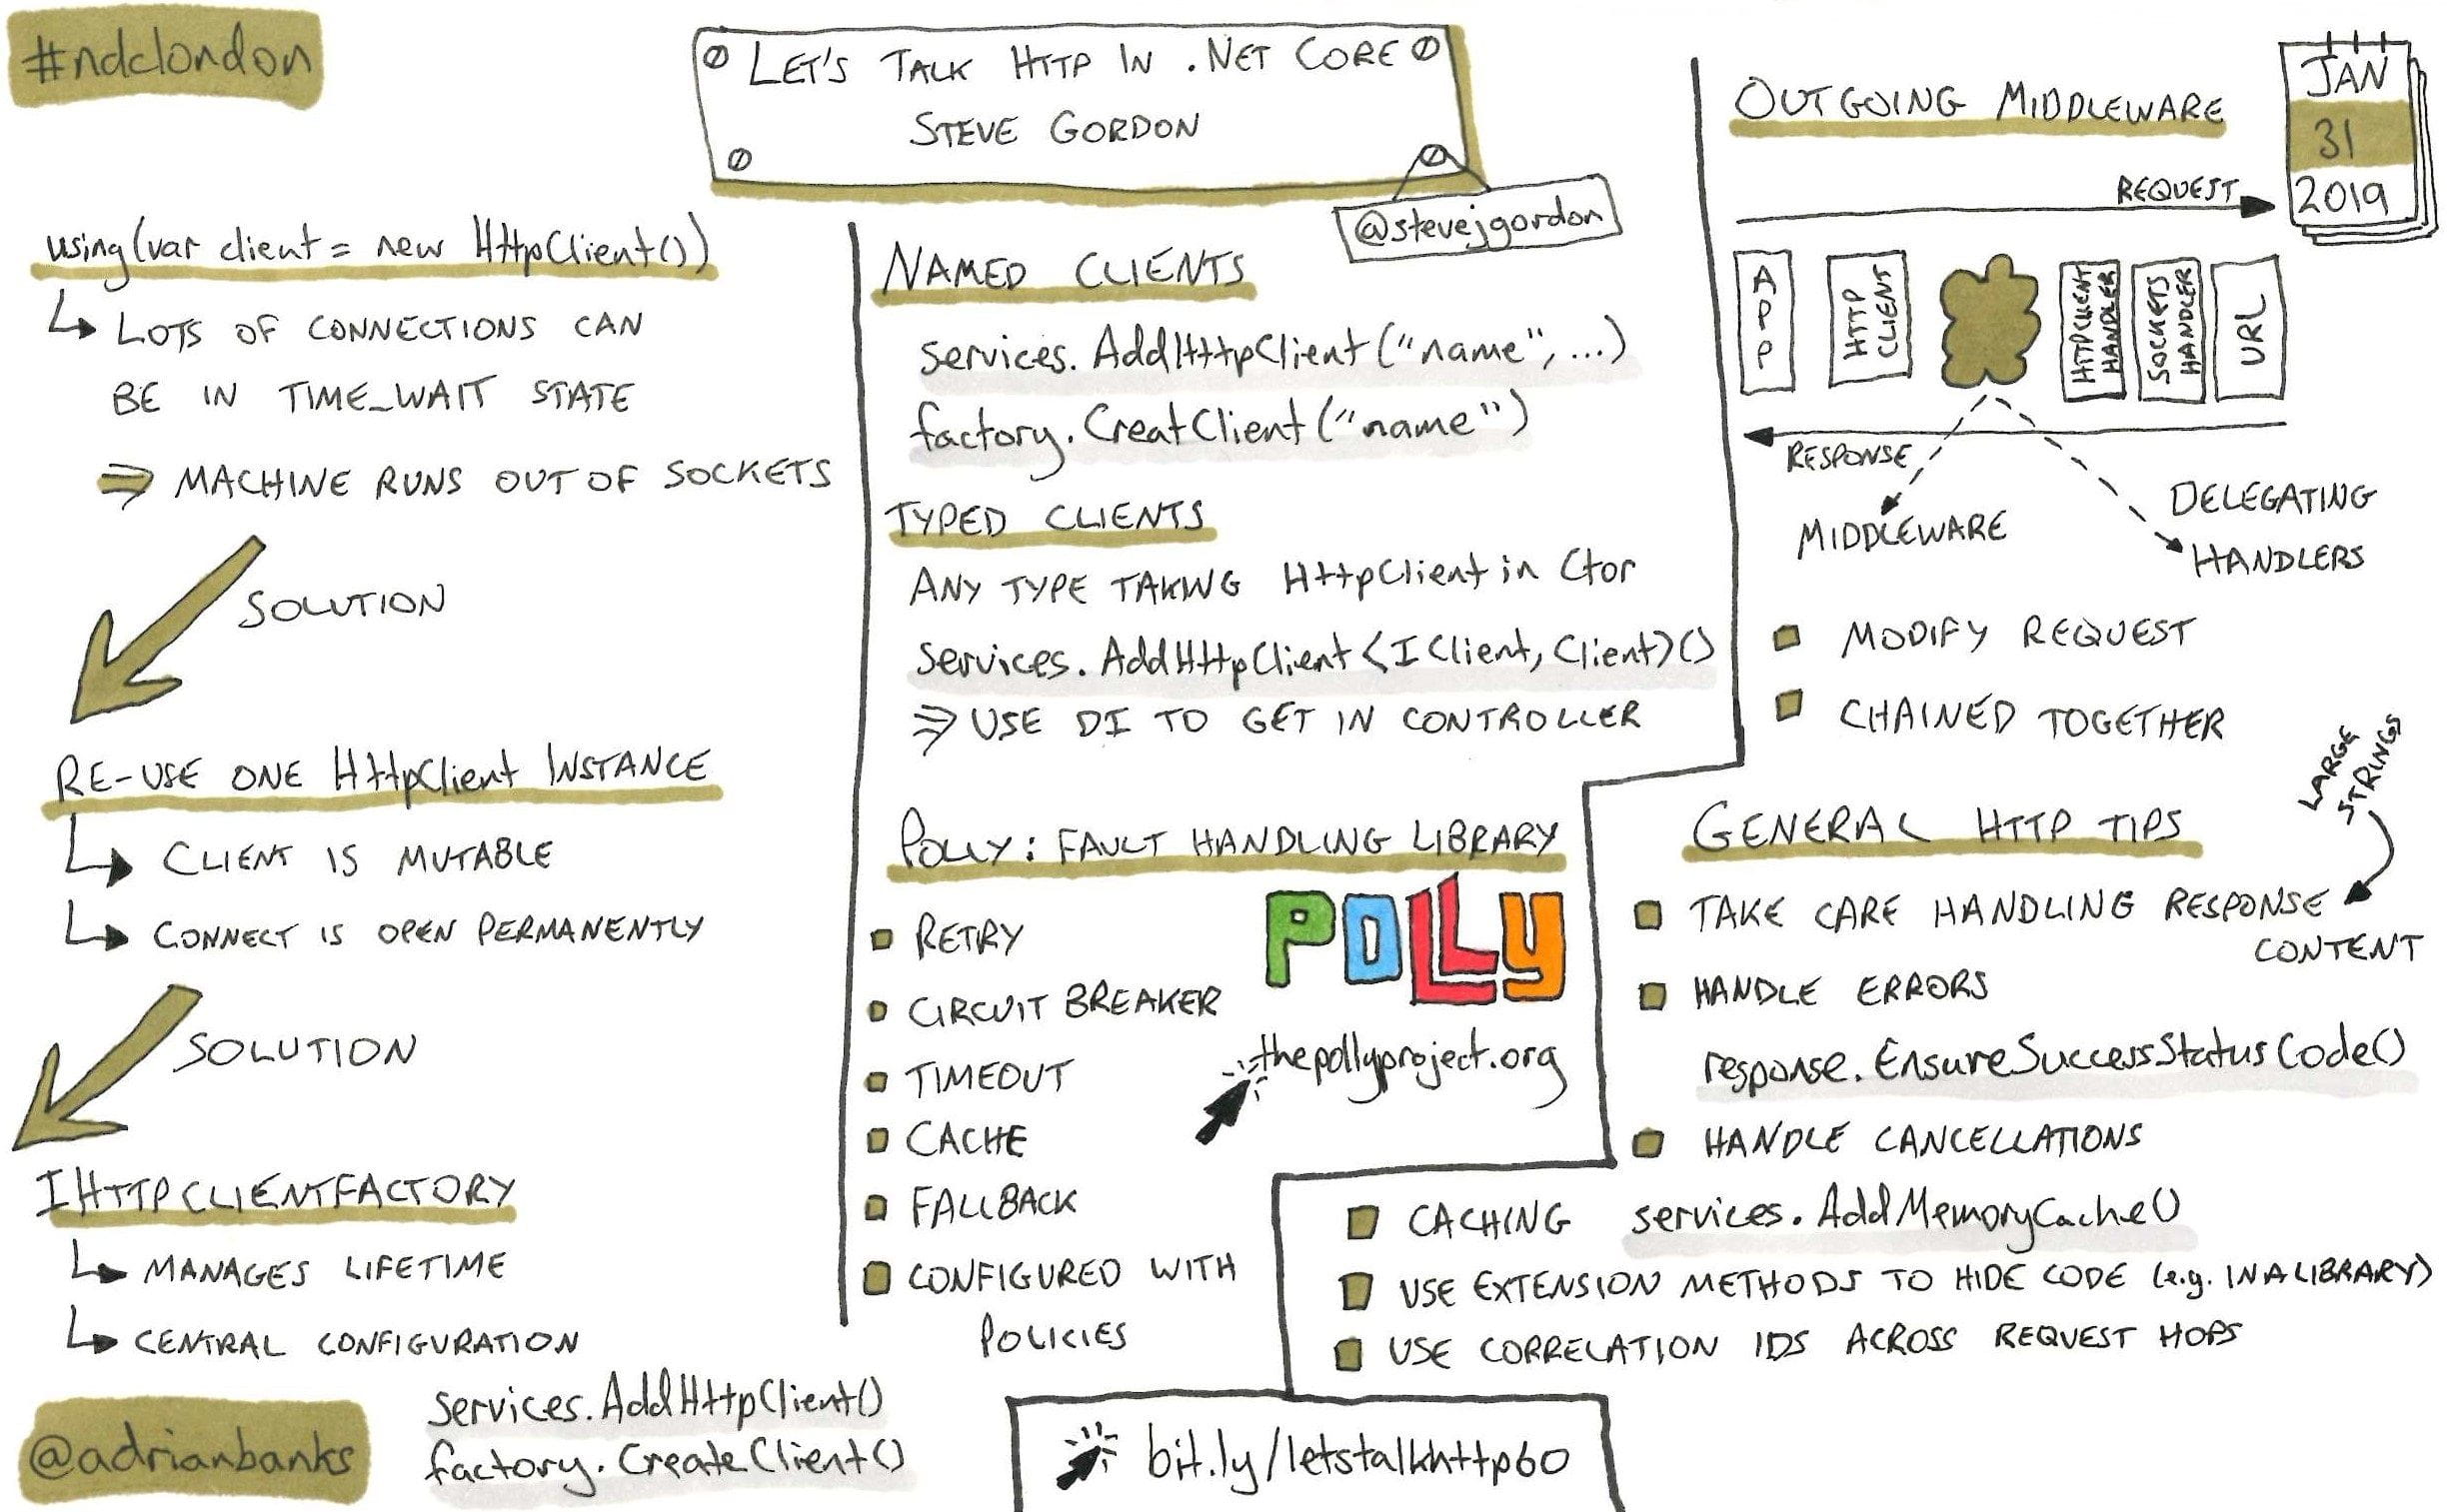 #ndclondon
LET'S TALK HTTP IN .NET CORE
STEVE GORDON
@stevejgordon
JAN
31
2019
using(var client = new HttpClient())
LOTS OF CONNECTIONS CAN
BE IN TIME_WAIT STATE
⇒ MACHINE RUNS OUT OF SOCKETS
SOLUTION
RE-USE ONE HttpClient INSTANCE
CLIENT IS MUTABLE
CONNECT IS OPEN PERMANENTLY
SOLUTION
IHTTPCLIENTFACTORY
MANAGES LIFETIME
CENTRAL CONFIGURATION
services.AddHttpClient()
factory.CreateClient()
@adrianbanks
NAMED CLIENTS
services.AddHttpClient("name", ...)
factory.CreatClient("name")
TYPED CLIENTS
ANY TYPE TAKING HttpClient in Ctor
services.AddHttpClient<IClient, Client>()
⇒ USE DI TO GET IN CONTROLLER
POLLY: FAULT HANDLING LIBRARY
RETRY
CIRCUIT BREAKER
TIMEOUT
CACHE
FALLBACK
CONFIGURED WITH
POLICIES
POLLY
thepollyproject.org
OUTGOING MIDDLEWARE
REQUEST
APP
HTTP
CLIENT
HTTPCLIENT
HANDLER
SOCKETS
HANDLER
URL
RESPONSE
MIDDLEWARE
DELEGATING
HANDLERS
MODIFY REQUEST
CHAINED TOGETHER
GENERAL HTTP TIPS
LARGE
STRINGS
TAKE CARE HANDLING RESPONSE
CONTENT
HANDLE ERRORS
response.EnsureSuccessStatusCode()
HANDLE CANCELLATIONS
CACHING services.AddMemoryCache()
USE EXTENSION METHODS TO HIDE CODE (e.g. IN A LIBRARY)
USE CORRELATION IDS ACROSS REQUEST HOPS
bit.ly/letstalkhttp60